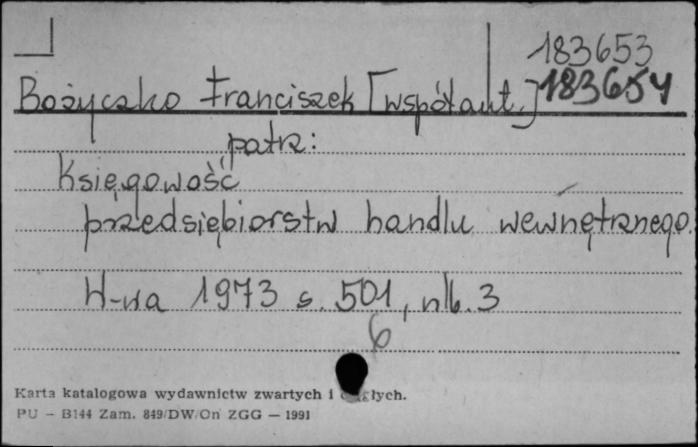 183653
Bożyczko Franciszek [współaut.] 183654
patrz:
Księgowość
przedsiębiorstw handlu wewnętrznego.
W-wa 1973 s. 501, nlb. 3
6
Karta katalogowa wydawnictw zwartych i ciągłych.
PU - B144 Zam. 849/DW/On ZGG - 1991